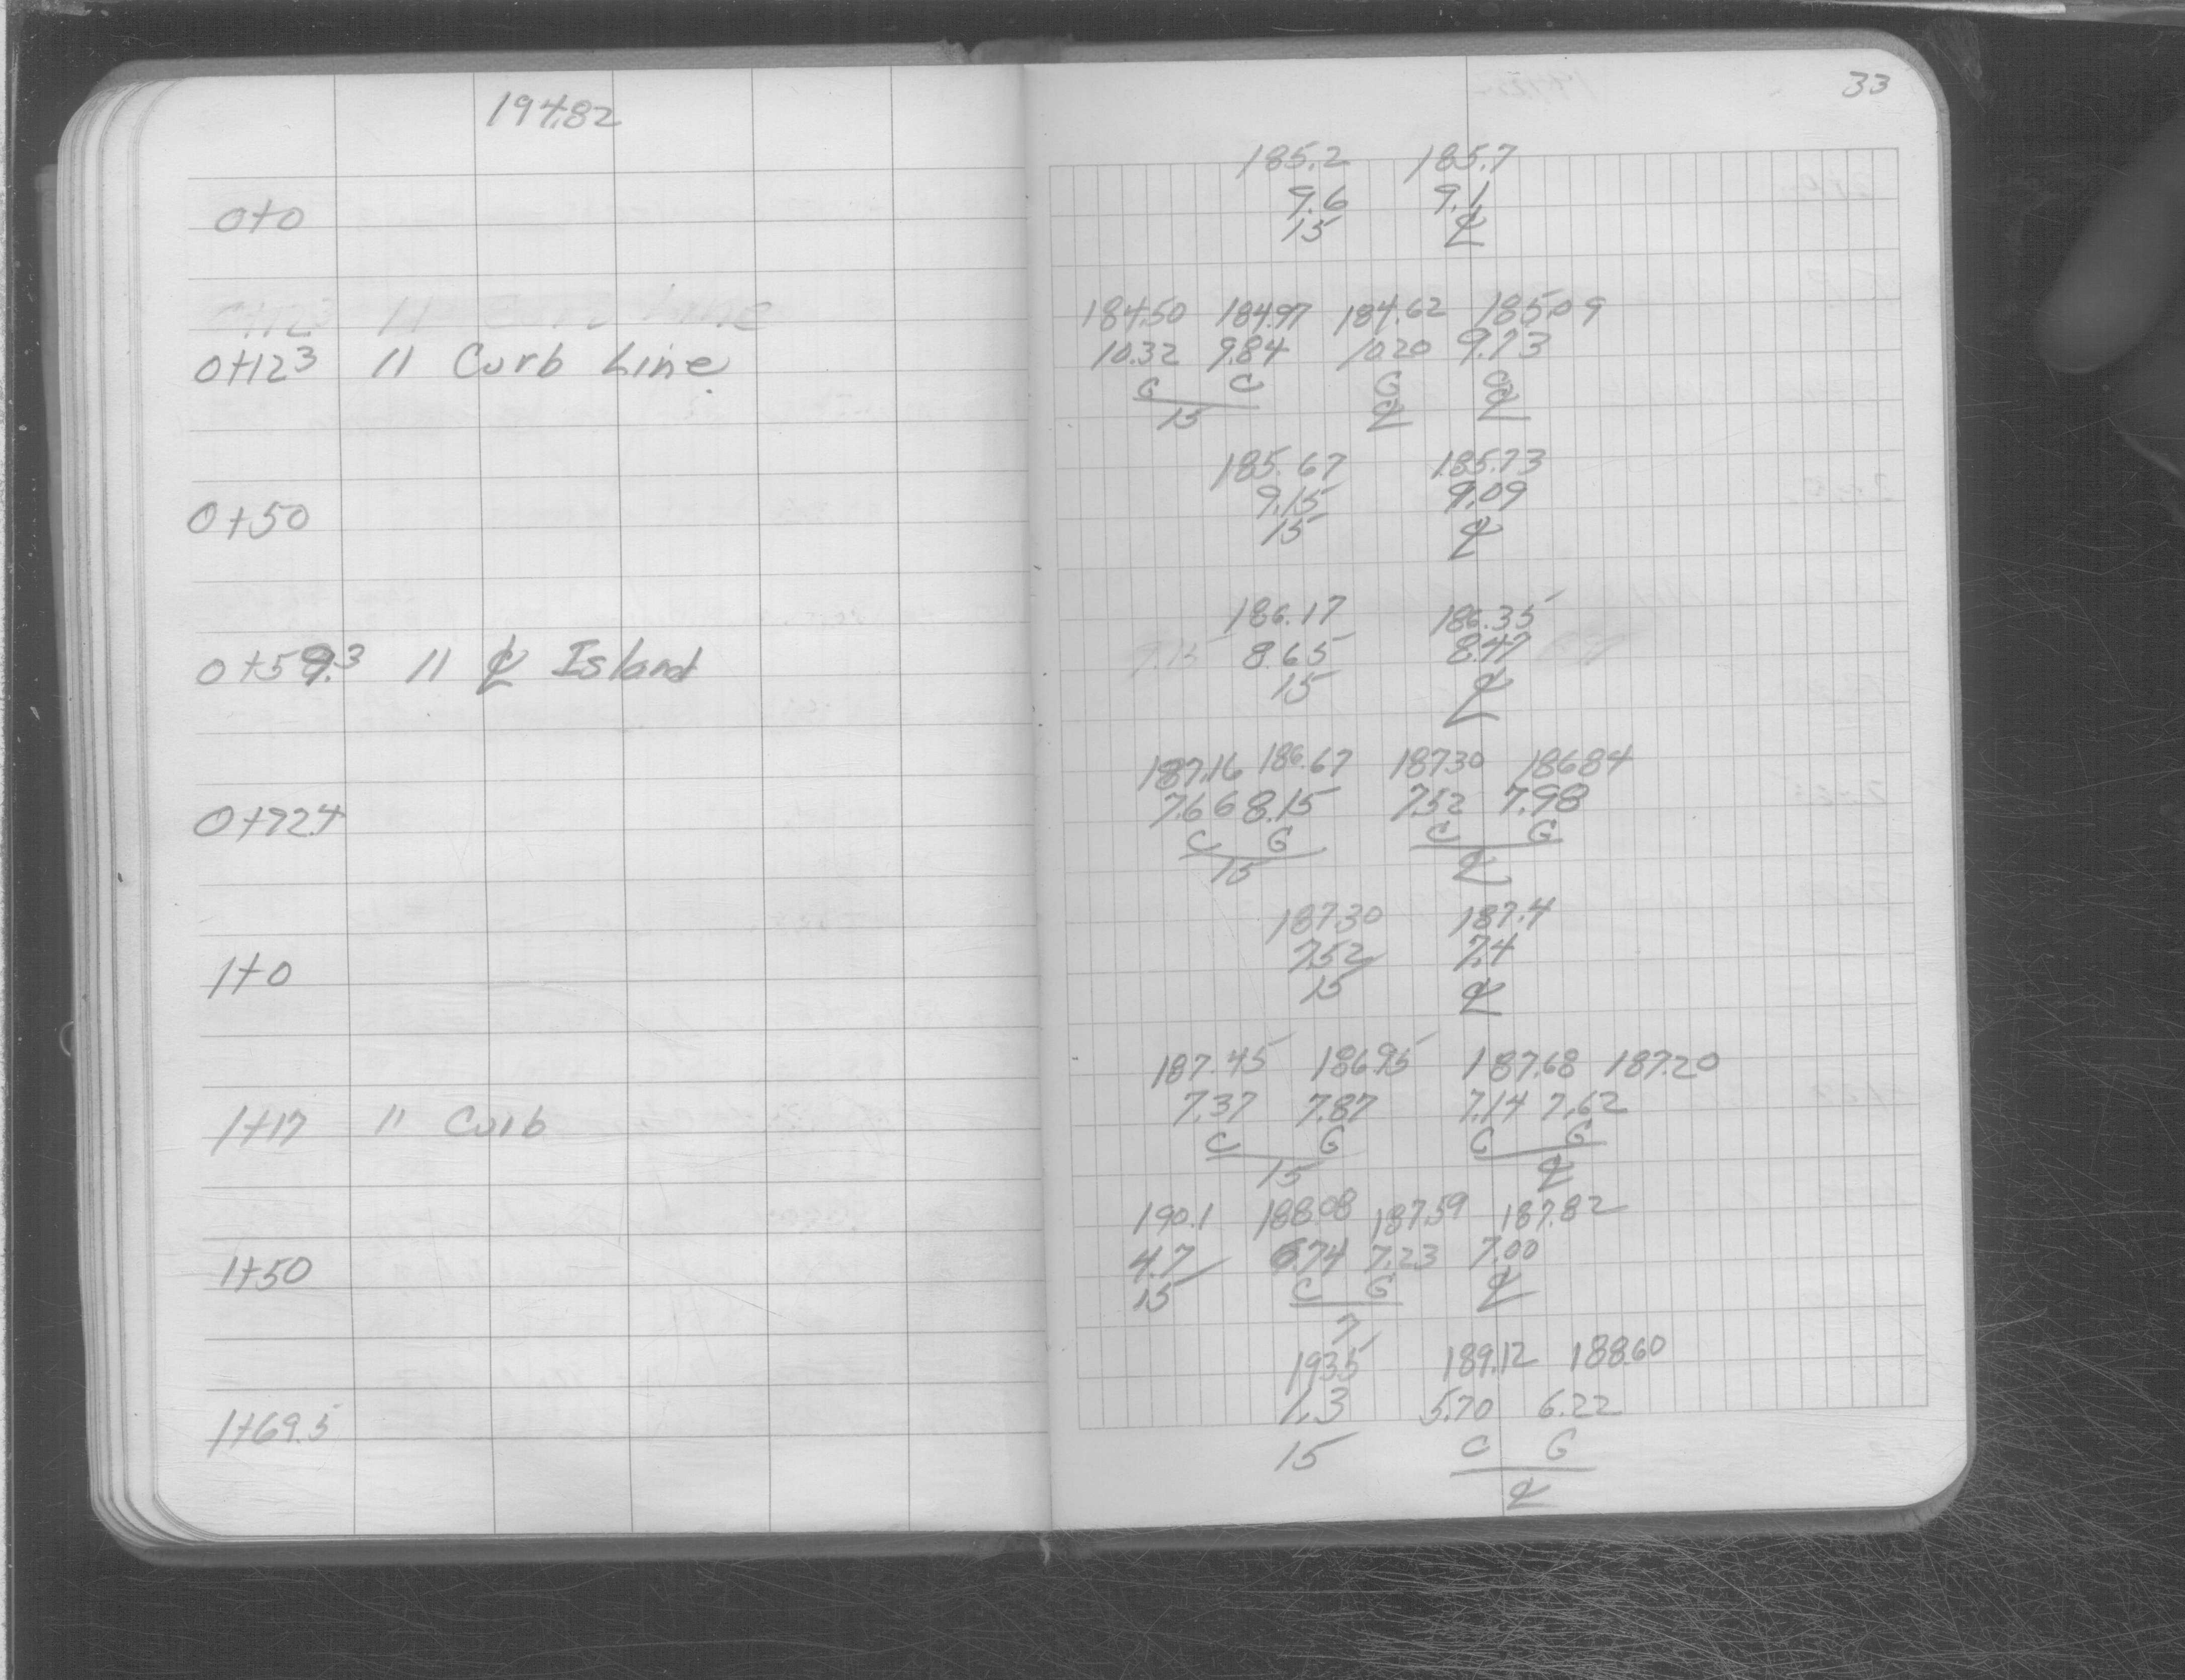 194.82
33
185.2 185.7
0+0 9.6 9.1
15 ℄
0+12³ 11 Curb Line
184.50 184.97 184.62 185.09
0+12³ 11 Curb Line 10.32 9.84 10.20 9.73
G C G C
15 ℄ ℄
185.67 185.73
0+50 9.15 9.09
15 ℄
186.17 186.35
0+59.3 11 ℄ Island 9.15 8.65 8.47
15 ℄
187.16 186.67 187.30 186.84
0+72.4 7.66 8.15 7.52 7.98
C G C G
15 ℄
187.30 187.4
1+0 7.52 7.4
15 ℄
187.45 186.95 187.68 187.20
1+17 11 Curb 7.37 7.87 7.14 7.62
C G C G
15 ℄
190.1 188.08 187.59 187.82
1+50 4.7 6.74 7.23 7.00
15 C G ℄
7
193.5 189.12 188.60
1+69.5 1.3 5.70 6.22
15 C G
℄